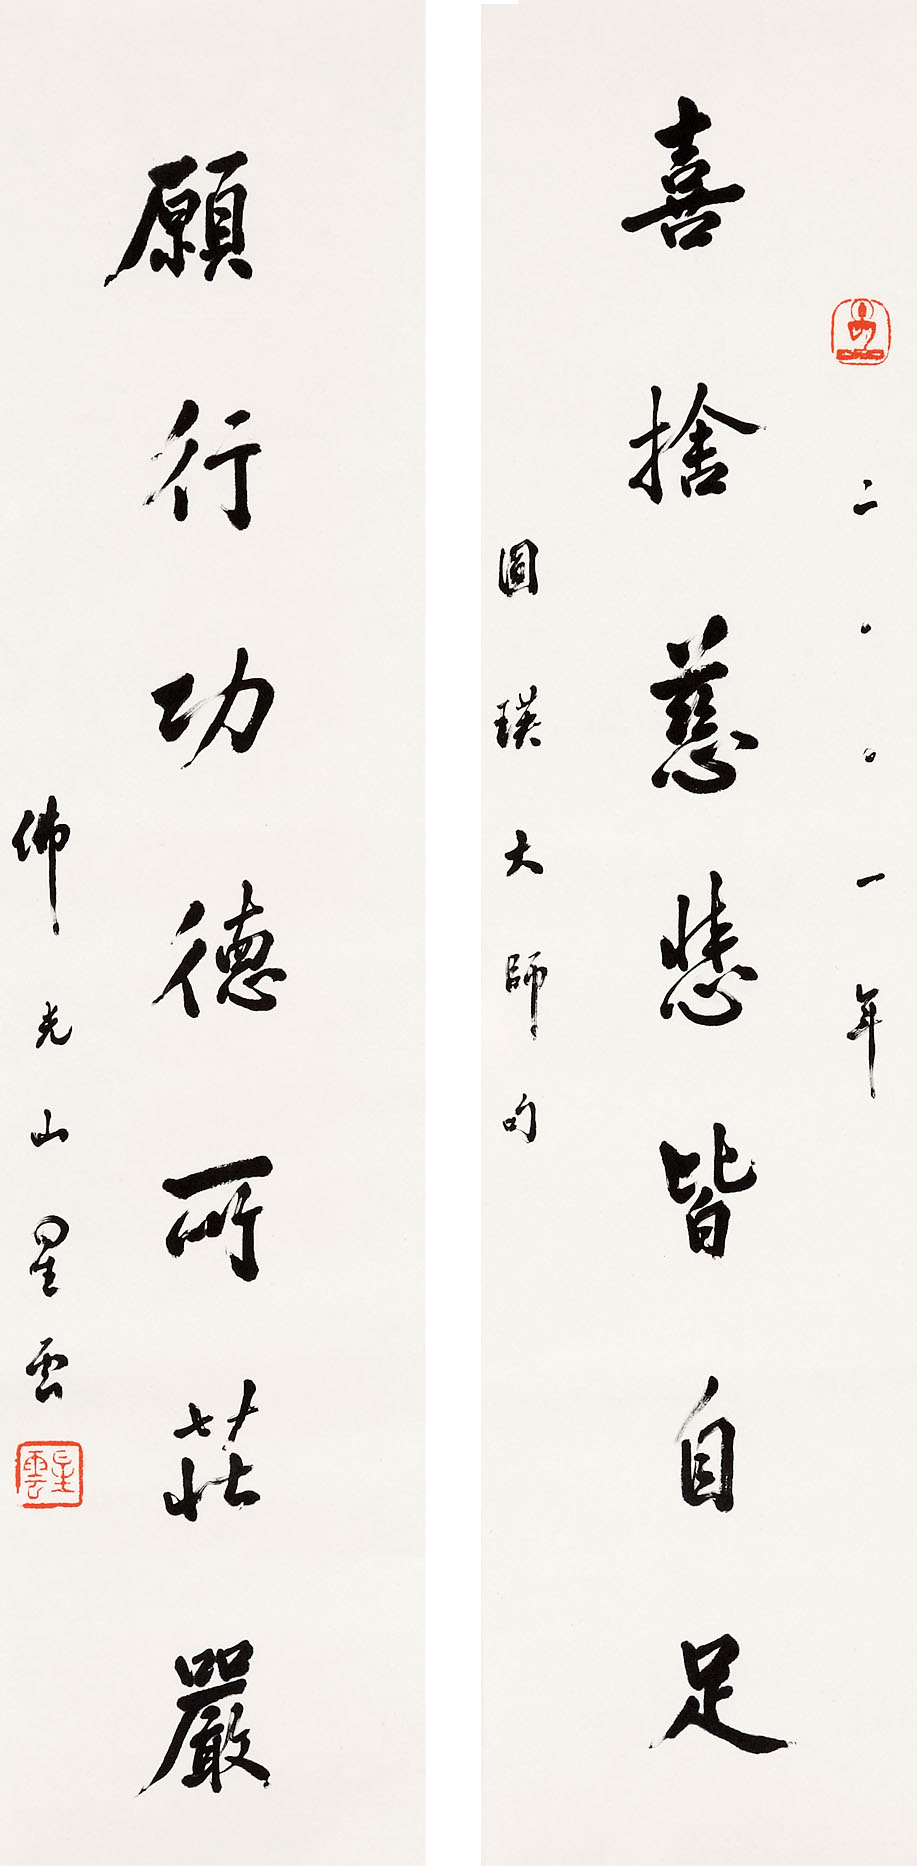 二〇〇一年
喜捨慈悲皆自足
圓瑛大師句
願行功德可莊嚴
佛光山星雲
星雲